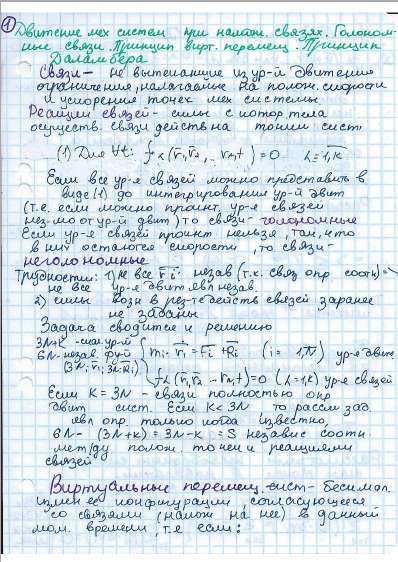 ① Движение мех систем при налож. связях. Голоном-
ные связи. Принцип вирт. перемещ. Принцип
Даламбера
Связи – не вытекающие из ур-й движения
ограничения, налагаемые на полож. скорости
и ускорения точек мех системы
Реакции связей – силы с котор. тела
осуществ. связи действ на точки сист.
(1) Для ∀t: f_α(r̄₁, r̄₂, .. r̄_N, t) = 0 α = 1,k
Если все ур-е связей можно представить в
виде (1) до интегрирования ур-й движ
(т.е. если можно проинт. ур-е связей
нез-мо от ур-й движ) то связи – голономные
Если ур-е связей проинт нельзя, так, что
в них остаются скорости, то связи –
неголономные
Трудности: 1) не все r̄i независ (т.к. связ опр соотн) =>
не все ур-е движ явл незав.
2) силы возн в рез-те действ связей заранее
не заданы
Задача сводится к решению
3N+K – скал ур-й
6N – незав. ф-й { m_i r̄_i = F̄_i + R̄_i (i = 1,N) ур-е движ
(3N r̄i; 3N R̄i) f_α(r̄₁, r̄₂ .. r̄_N, t) = 0 (α = 1,k) ур-е связей
Если K = 3N – связи полностью опр
движ сист. Если K < 3N, то рассм зад.
явл опр. только когда известно,
6N – (3N + K) = 3N – K = S независ соотн
между полож. точек и реакциями
связей
Виртуальные перемещ. сист – бесимал.
измен ее конфигурации, согласующееся
со связями (налож на нее) в данный
мом. времени, т.е если: